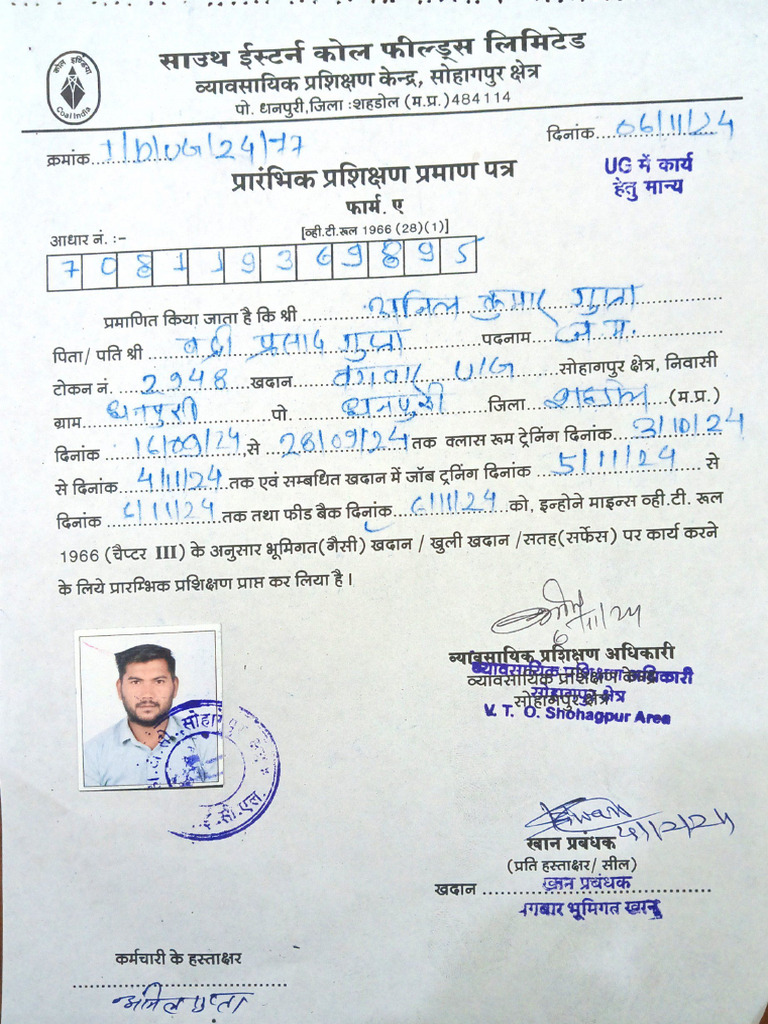 कोल इण्डिया
Coal India
साउथ ईस्टर्न कोल फील्ड्स लिमिटेड
व्यावसायिक प्रशिक्षण केन्द्र, सोहागपुर क्षेत्र
पो. धनपुरी,जिला :शहडोल (म.प्र.)484114
क्रमांक.....I/D/UG/24/77
दिनांक.....06/11/24
प्रारंभिक प्रशिक्षण प्रमाण पत्र
UG में कार्य
हेतु मान्य
फार्म. ए
[व्ही.टी.रूल 1966 (28)(1)]
आधार नं. :-
7 0 8 1 1 9 3 6 9 8 9 5
प्रमाणित किया जाता है कि श्री .....अनिल कुमार गुप्ता
पिता/ पति श्री बद्री प्रसाद गुप्ता पदनाम ज.म.
टोकन नं. 2948 खदान बंगवार U/G सोहागपुर क्षेत्र, निवासी
ग्राम धनपुरी पो. धनपुरी जिला शहडोल (म.प्र.)
दिनांक 16/09/24 से 28/09/24 तक क्लास रूम ट्रेनिंग दिनांक 3/10/24
से दिनांक 4/11/24 तक एवं सम्बधित खदान में जॉब ट्रनिंग दिनांक 5/11/24 से
दिनांक 6/11/24 तक तथा फीड बैक दिनांक 6/11/24 को, इन्होने माइन्स व्ही.टी. रूल
1966 (चैप्टर III) के अनुसार भूमिगत(गैसी) खदान / खुली खदान /सतह(सर्फेस) पर कार्य करने
के लिये प्रारम्भिक प्रशिक्षण प्राप्त कर लिया है।
व्यावसायिक प्रशिक्षण अधिकारी
व्यावसायिक प्रशिक्षण केन्द्र
सोहागपुर क्षेत्र
व्यावसायिक प्रशिक्षण अधिकारी
सोहागपुर क्षेत्र
V. T. O. Shohagpur Area
खान प्रबंधक
(प्रति हस्ताक्षर/ सील)
खदान .....
खान प्रबंधक
कर्मचारी के हस्ताक्षर
अनिल गुप्ता